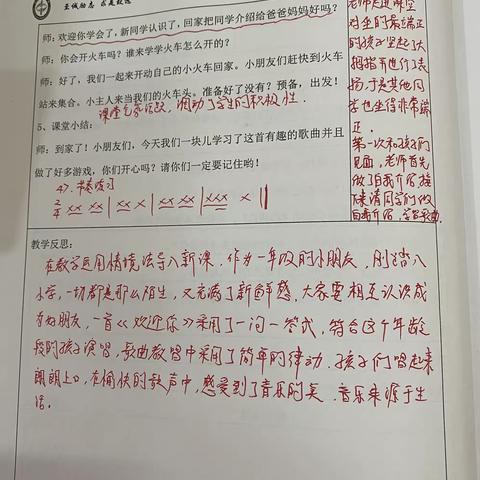 至诚励志 求是致远
师：欢迎你学会了，新同学认识了，回家把同学介绍给爸爸妈妈好吗？
师：你会开火车吗？谁来学学火车怎么开的？
师：好了，我们一起来开动自己的小火车回家。小朋友们赶快到火车
站来集合。小主人来当我们的火车头。准备好了没有？预备，出发！
课堂气氛活跃，调动了学生的积极性.
5、课堂小结：
师：到家了！小朋友们，今天我们一块儿学习了这首有趣的歌曲并且
做了好多游戏，你们开心吗？请你们一定要记住哟！
47. 节奏练习
2/4 xx xx | xx x | xx xx | xxx x ||
老师走进课堂
对坐的最端正
的孩子竖起了大
拇指并进行了表
扬.于是其他同
学也坐得非常端
正.
第一次和孩子们
见面，老师首先
做了自我介绍,接
下来请同学们做
自我介绍,
教学反思：
在教学运用情境法导入新课.作为一年级的小朋友，刚踏入
小学，一切都是那么陌生，又充满了新鲜感，大家要相互认识成
为好朋友，一首《欢迎你》采用了一问一答式，符合这个年龄
段的孩子演唱，歌曲教唱中采用了简单的律动.孩子们唱起来
朗朗上口，在愉快的歌声中，感受到了音乐的美.音乐来源于生
活。